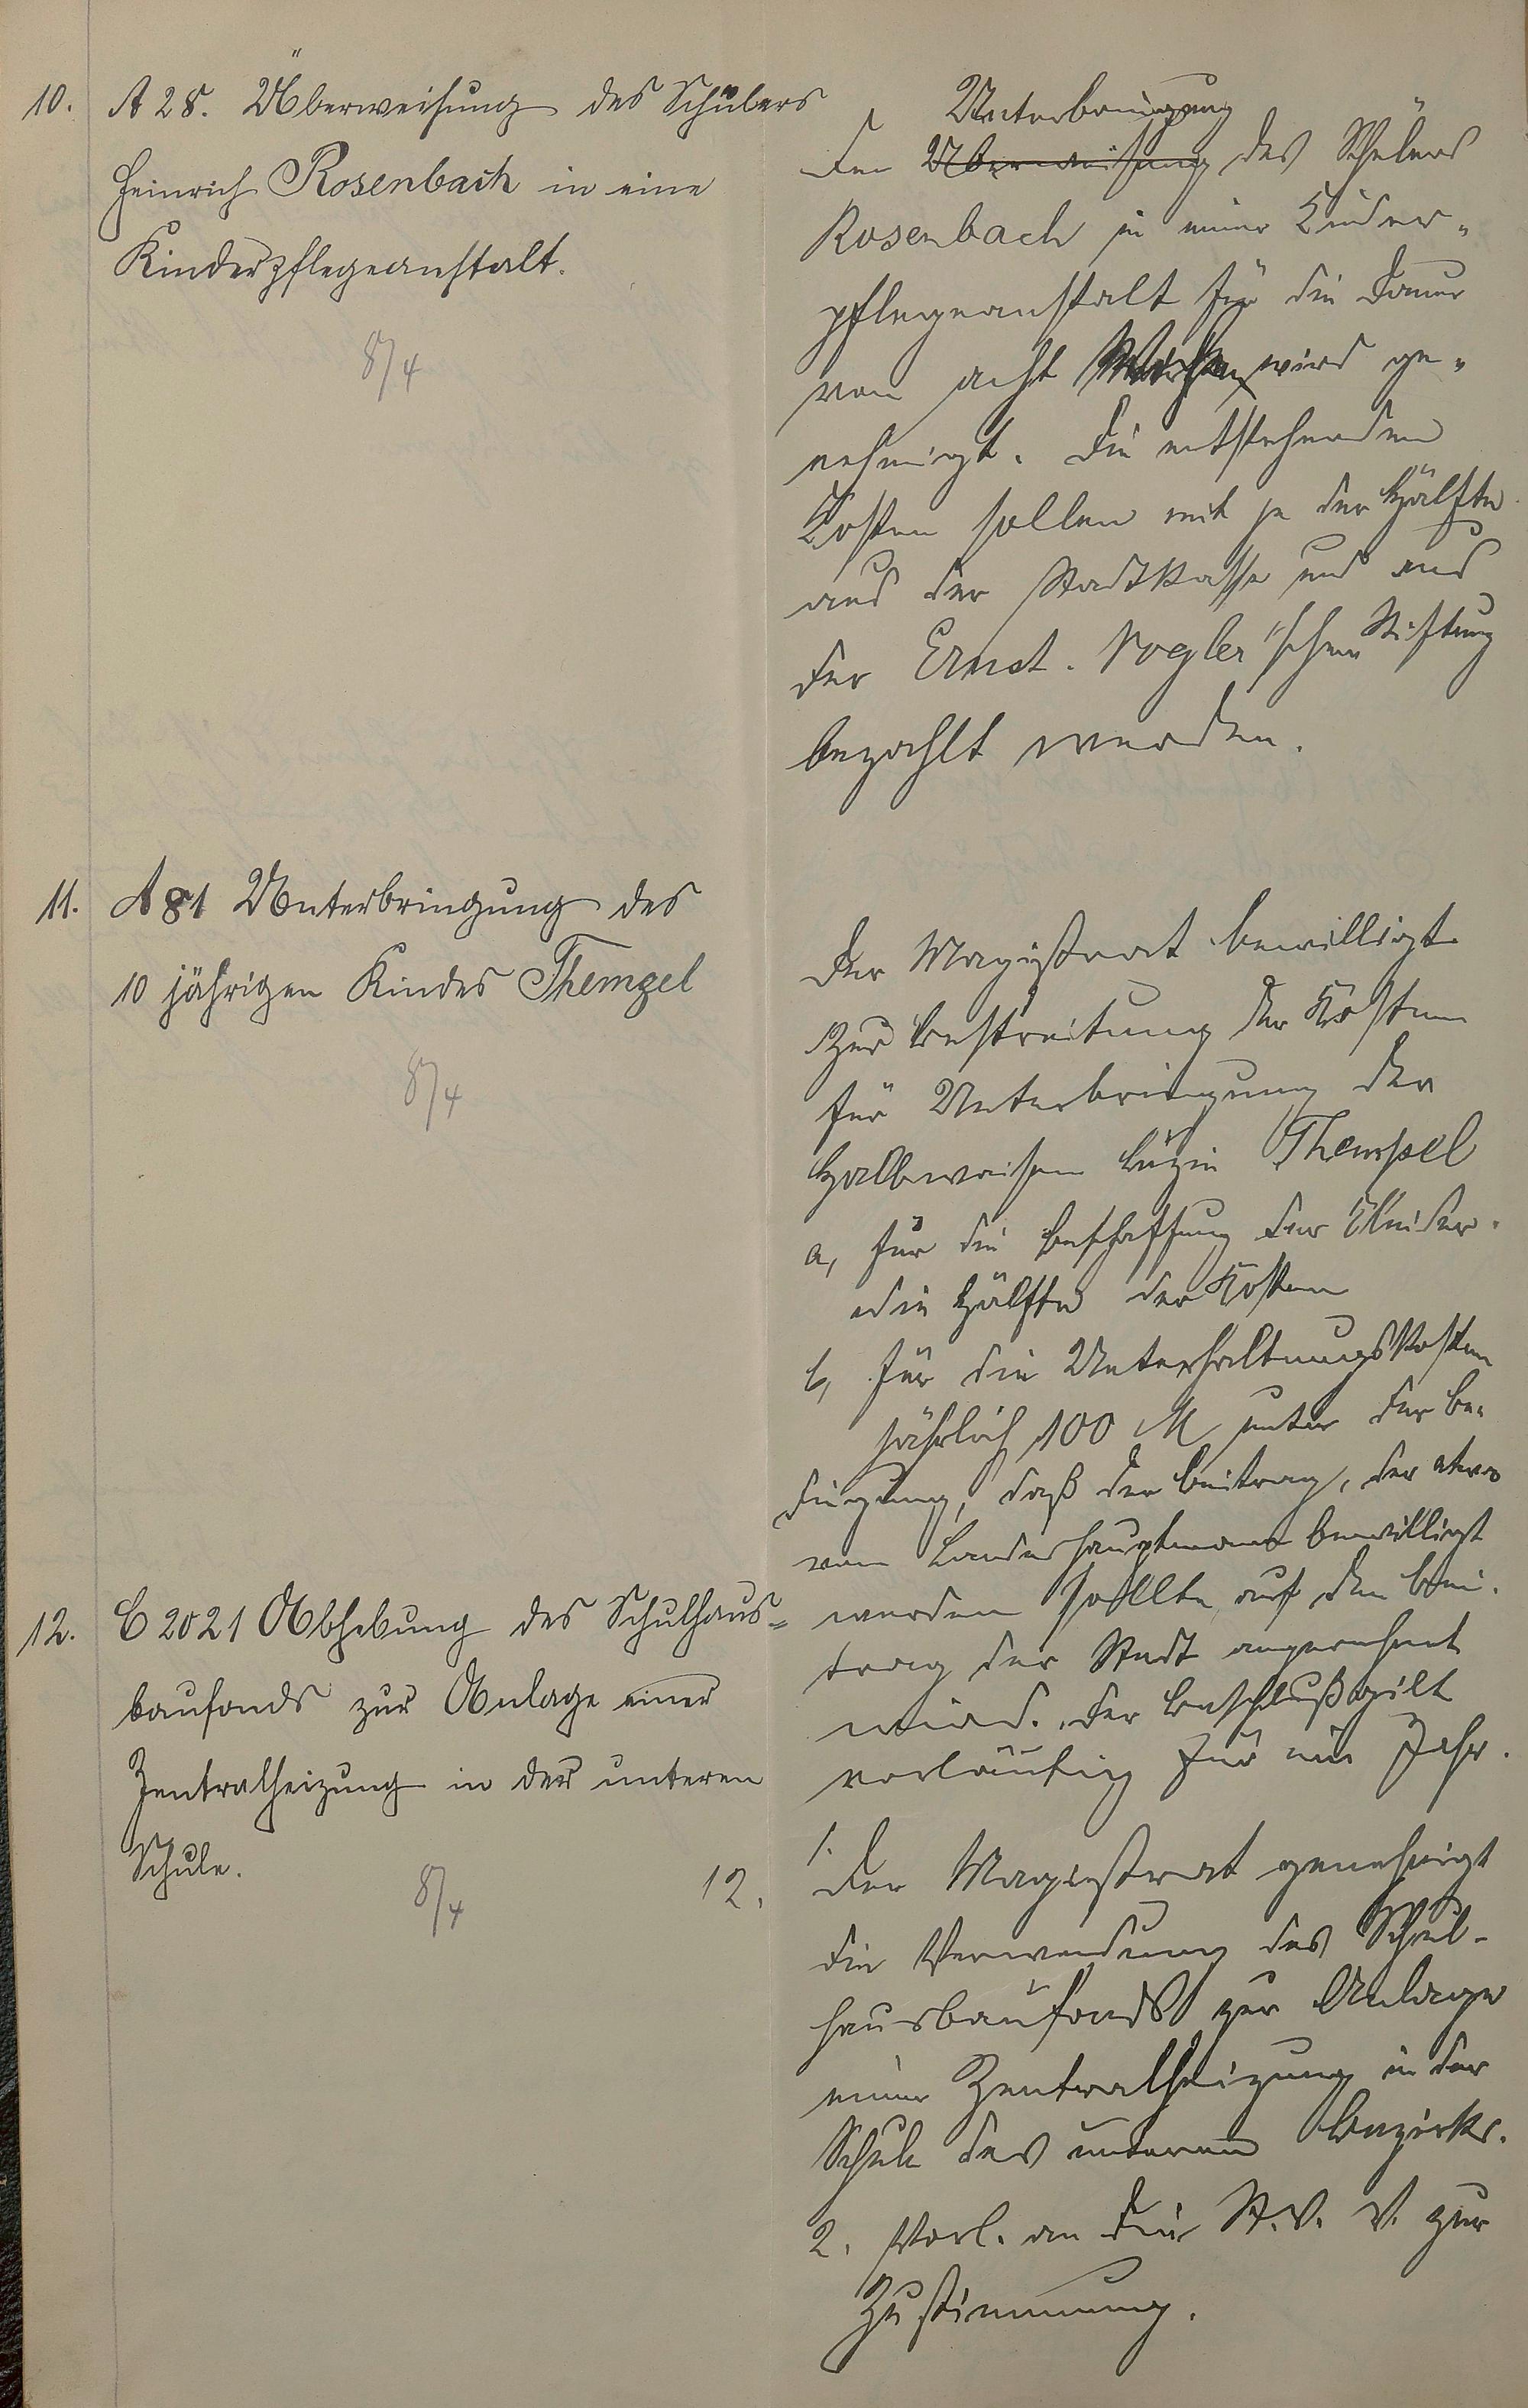 10. A 28. Überweisung des Schülers
Heinrich Rosenbach in eine
Kinderpflegeanstalt.
8/4
Unterbringung
Der Überweisung des Schülers
Rosenbach in einer Kinder-
pflegeanstalt für die Dauer
von acht Wochen wird ge-
nehmigt. Die entstehenden
Kosten sollen mit je der Hälfte
aus der Stadtkasse und aus
der Ernst. Vogler'schen Stiftung
bezahlt werden.
11. A 81 Unterbringung des
10 jährigen Kindes Thempel
8/4
Der Magistrat bewilligt
zur Bestreitung der Kosten
für Unterbringung der
Halbwaisen Thempel
a, für die Beschaffung der Kleider
die Hälfte der Kosten
b, für die Unterhaltungskosten
jährlich 100 M unter der Be-
dingung, daß der Beitrag, der etwa
vom Landeshauptmann bewilligt
werden sollte, auf den Bei-
trag der Stadt angerechnet
wird. Der Beschluß gilt
vorläufig für ein Jahr.
12. C 2021 Abhebung des Schulhaus-
baufonds zur Anlage einer
Zentralheizung in der unteren
Schule.
8/4
12. 1.
Der Magistrat genehmigt
die Verwendung des Schul-
hausbaufonds zur Anlage
einer Zentralheizung in der
Schule des unteren Bezirks.
2. Vorl. an die St. V. V. zur
Zustimmung.